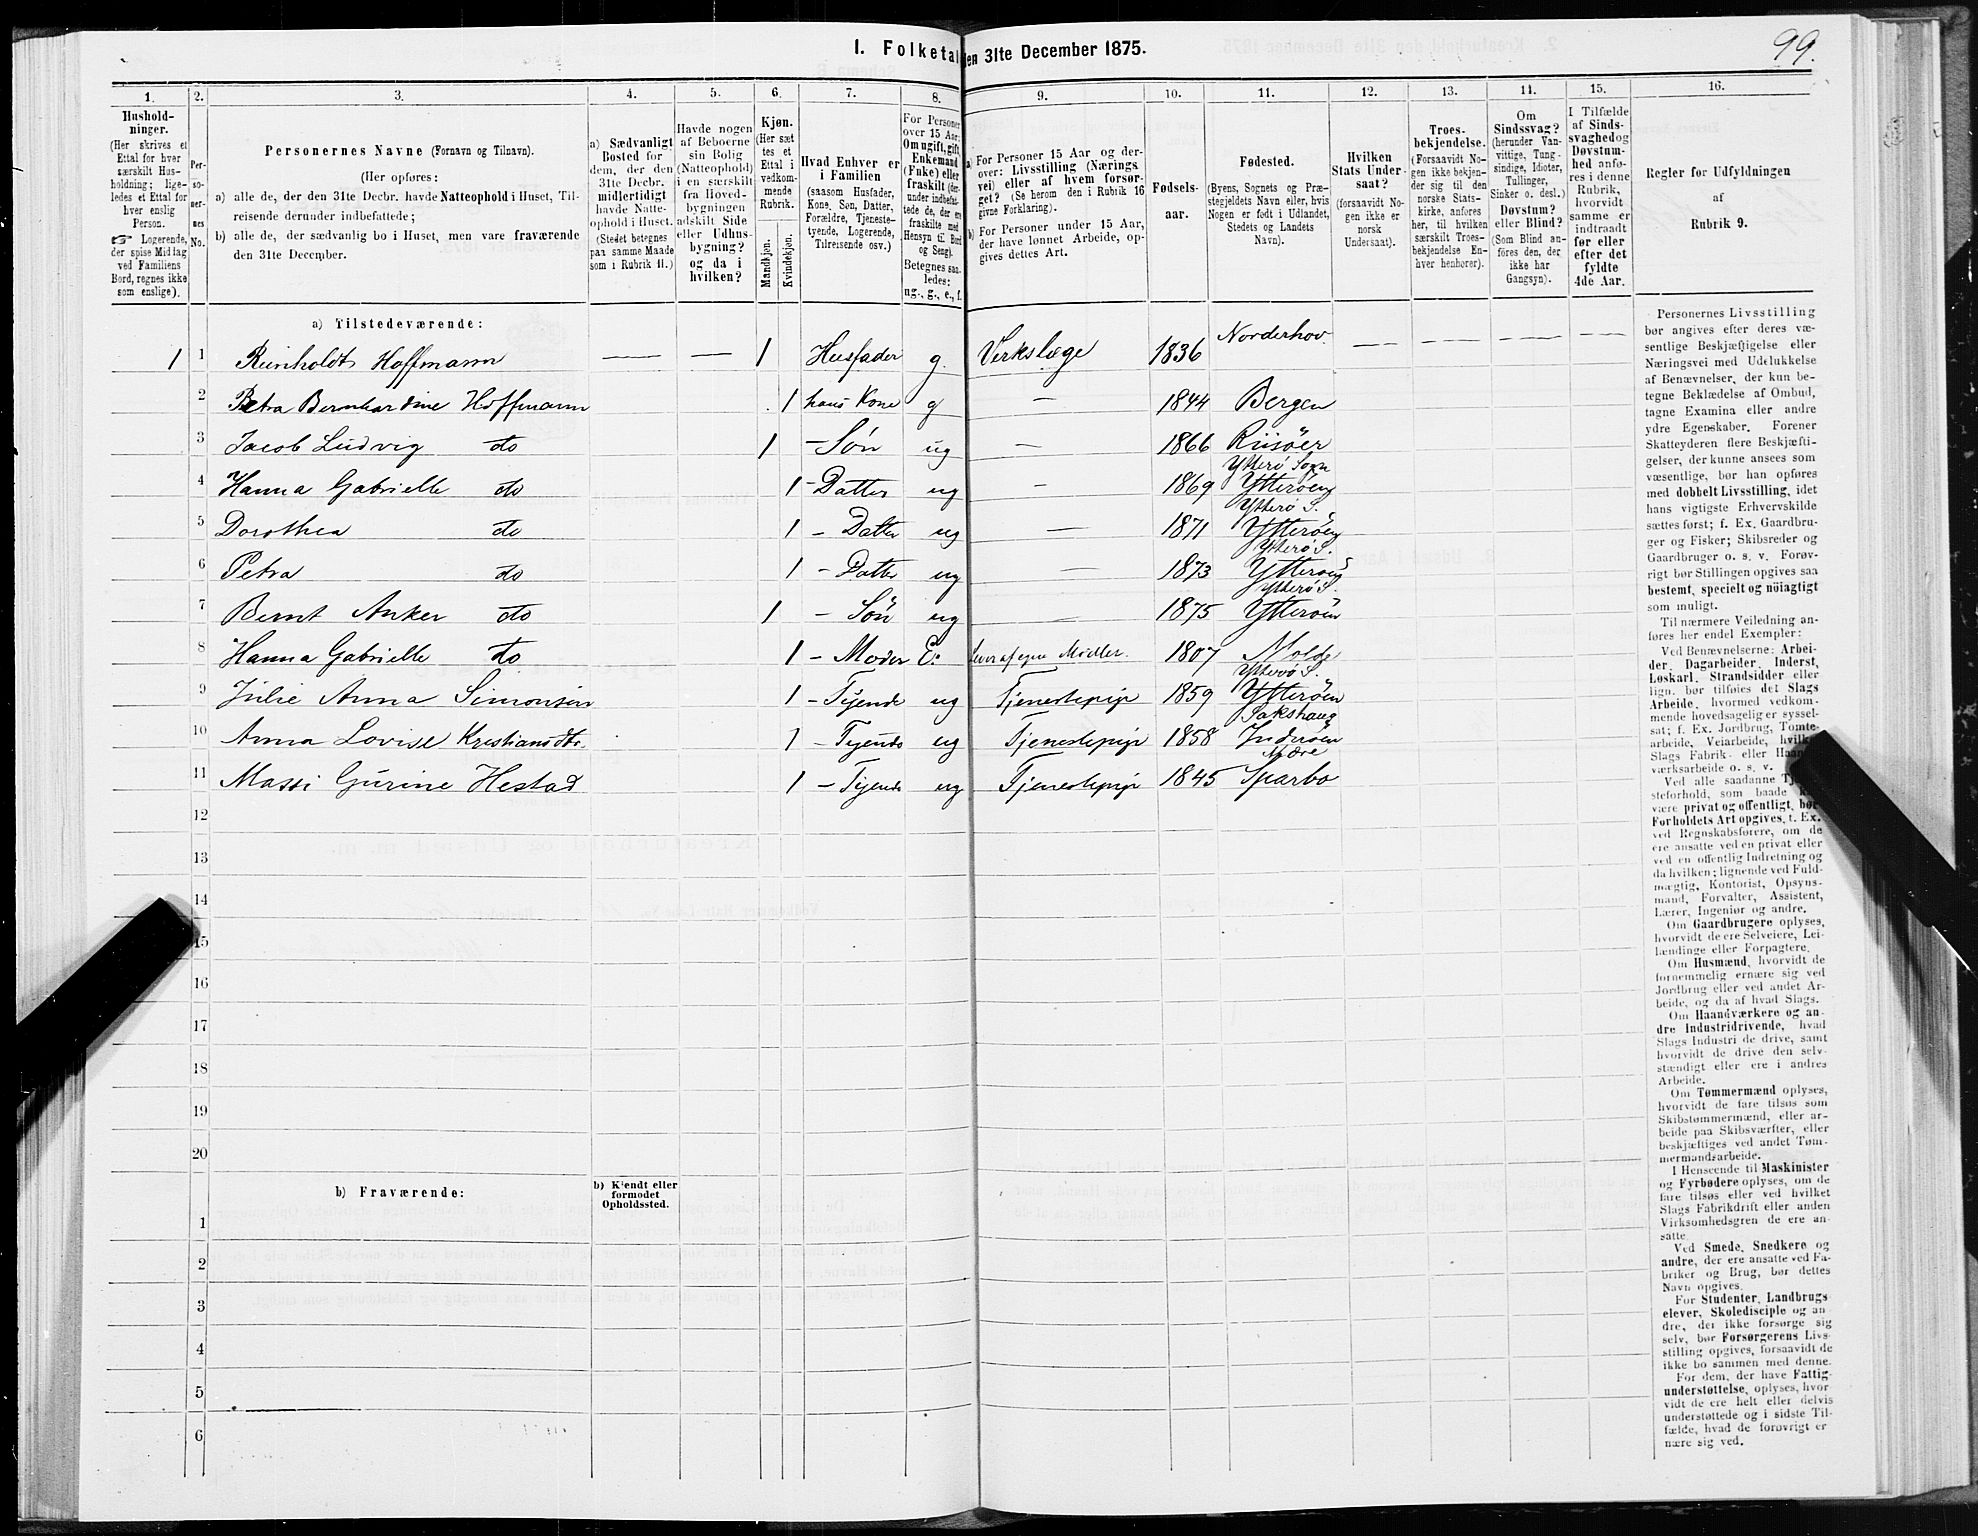 99.
1. Folketal
den 31te December 1875.
1. 2. 3. 4. 5. 6. 7. 8. 9. 10. 11. 12. 13. 14. 15. 16.
Hushold-
ninger.
(Her skrives et
Ettal for hver
særskilt Hus-
holdning; lige-
ledes et Ettal for
hver enslig
Person.
☞ Logerende,
der spise Middag
ved Familiens
Bord, regnes ikke
som enslige).
Per-
so-
ner-
nes
No.
Personernes Navne (Fornavn og Tilnavn).
(Her opføres:
a) alle de, der den 31te Decbr. havde Natteophold i Huset, Til-
reisende derunder indbefattede;
b) alle de, der sædvanlig bo i Huset, men vare fraværende
den 31te December.
a) Sædvanligt
Bosted for
dem, der den
31te Decbr.
midlertidigt
havde Natte-
ophold i Huset.
(Stedet betegnes
paa samme Maade
som i Rubrik 11.)
Havde nogen
af Beboerne
sin Bolig
(Natteophold)
i en særskilt
fra Hoved-
bygningen
adskilt Side
eller Udhus-
bygning?
og da i
hvilken?
Kjøn.
(Her sæt
tes et
Ettal i
vedkom-
mende
Rubrik.
Mandkjøn.
Kvindekjøn.
Hvad Enhver er
i Familien
(saasom Husfader,
Kone, Søn, Datter,
Forældre, Tjeneste-
tyende, Logerende,
Tilreisende osv.)
For Personer
over 15 Aar:
Om ugift, gift,
Enkemand
(Enke) eller
fraskilt (der-
under indbefat-
tede de, der ere
fraskilte med
Hensyn til Bord
og Seng).
Betegnes saa-
ledes:
ug., g., e., f.
a) For Personer 15 Aar og der-
over: Livsstilling (Nærings
vei) eller af hvem forsør-
get? (Se herom den i Rubrik 16
givne Forklaring).
b) For Personer under 15 Aar,
der have lønnet Arbeide, op-
gives dettes Art.
Fødsels-
aar.
Fødested.
(Byens, Sognets og Præ-
stegjeldets Navn eller, hvis
Nogen er født i Udlandet,
Stedets og Landets
Navn).
Hvilken
Stats Under-
saat?
(forsaavidt No-
gen ikke er
norsk
Undersaat).
Troes-
bekjendelse.
(Forsaavidt No-
gen ikke bekjen-
der sig til den
norske Stats-
kirke, anføres
her, til hvilken
særskilt Troes-
bekjendelse En-
hver henhører).
Om
Sindssvag?
(herunder Van-
vittige, Tung-
sindige, Idioter,
Tullinger,
Sinker o. desl.)
Døvstum?
eller Blind?
(Som Blind an-
føres den, der
ikke har
Gangsyn).
I Tilfælde
af Sinds-
svaghed og
Døvstum-
hed anfø-
res i denne
Rubrik,
hvorvidt
samme er
indtraadt
før eller
efter det
fyldte
4de Aar.
Regler for Udfyldningen
af
Rubrik 9.
a) Tilstedeværende:
1 1 Reinholdt Hoffmann — — 1 Husfader g. Verkslæge 1836 Norderhov — — — —
2 Petra Bernhardine Hoffmann 1 hans Kone g — 1844 Bergen
3 Jacob Ludvig do 1 – Søn ug — 1866 Riisöer
Ytterö Sogn
4 Hanna Gabrielle do 1 – Datter ug — 1869 Ytteröen
Ytterö S.
5 Dorothea do 1 – Datter ug — 1871 Ytteröen
Ytterö S.
6 Petra do 1 – Datter ug — 1873 Ytteröen
Ytterö S.
7 Bernt Anker do 1 – Søn ug — 1875 Ytteröen
8 Hanna Gabrielle do 1 – Moder E. Lever af egne Midler. 1807 Molde
Ytterö S.
9 Julie Anna Simonsen 1 – Tyende ug Tjenestepige 1859 Ytteröen
Sakshaug
10 Anna Lovise Kristiansdtr. 1 – Tyende ug Tjenestepige 1858 Inderöen
Mære
11 Massi Gurine Hestad 1 – Tyende ug Tjenestepige 1845 Sparbo
12
13
14
15
16
17
18
19
20
b) Fraværende:
b) Kjendt eller
formodet
Opholdssted.
1
2
3
4
5
6
Personernes Livsstilling
bør angives efter deres væ-
sentlige Beskjæftigelse eller
Næringsvei med Udelukkelse
af Benævnelser, der kun be-
tegne Beklædelse af Ombud,
tagne Examina eller andre
ydre Egenskaber. Forener
Skatteyderen flere Beskjæfti-
gelser, der kunne ansees som
væsentlige, bør han opføres
med dobbelt Livsstilling, idet
hans vigtigste Erhvervskilde
sættes først; f. Ex. Gaardbru-
ger og Fisker; Skibsreder og
Gaardbruger o. s. v. Forøv-
rigt bør Stillingen opgives saa
bestemt, specielt og nöiagtigt
som muligt.
Til nærmere Veiledning an-
føres her endel Exempler:
Ved Benævnelserne: Arbei-
der, Dagarbeider, Inderst,
Løskarl, Strandsidder eller
lign. bør tilføies det Slags
Arbeide, hvormed vedkom-
mende hovedsagelig er syssel-
sat; f. Ex. Jordbrug, Tomte-
arbeide, Veiarbeide, hvilket
Slags Fabrik- eller
værksarbeide o. s. v.
Ved alle saadanne
steforhold, som baade
være privat og offentligt, bør
Forholdets Art opgives, t. Ex.
ved Regnskabsførere, om de
ere ansatte ved en privat eller
ved en offentlig Indretning og
da hvilken; lignende ved Fuld-
mægtig, Kontorist, Opsyns-
mand, Forvalter, Assistent,
Lærer, Ingeniør og andre.
Om Gaardbrugere oplyses,
hvorvidt de ere Selveiere, Lei-
lændinge eller Forpagtere.
Om Husmænd, hvorvidt de
fornemmelig ernære sig ved
Jordbrug eller ved andet Ar-
beide, og da af hvad Slags.
Om Haandværkere og an-
dre Industridrivende, hvad
Slags Industri de drive, samt
hvorvidt de drive den selv-
stændigt eller ere i andres
Arbeide.
Om Tømmermænd oplyses,
hvorvidt de fare tilsøs som
Skibstømmermænd, eller ar-
beide paa Skibsværfter, eller
beskjæftiges ved andet Tøm-
mermandsarbeide.
I Henseende til Maskinister
og Fyrbødere oplyses, om de
fare tilsøs eller ved hvilket
Slags Fabrikdrift eller anden
Virksomhedsgren de ere an-
satte.
Ved Smede, Snedkere og
andre, der ere ansatte ved Fa-
briker og Brug, bør dettes
Navn opgives.
For Studenter, Landbrugs
elever, Skoledisciple og an
dre, der ikke forsørge sig
selv, bør Forsørgerens Livs-
stilling opgives, forsaavidt de
ikke bo sammen med denne.
For dem, der have Fattig-
understøttelse, oplyses, hvor
vidt de ere helt eller delvis
understøttede og i sidste Til-
fælde, hvad de forøvrigt er
nære sig ved.